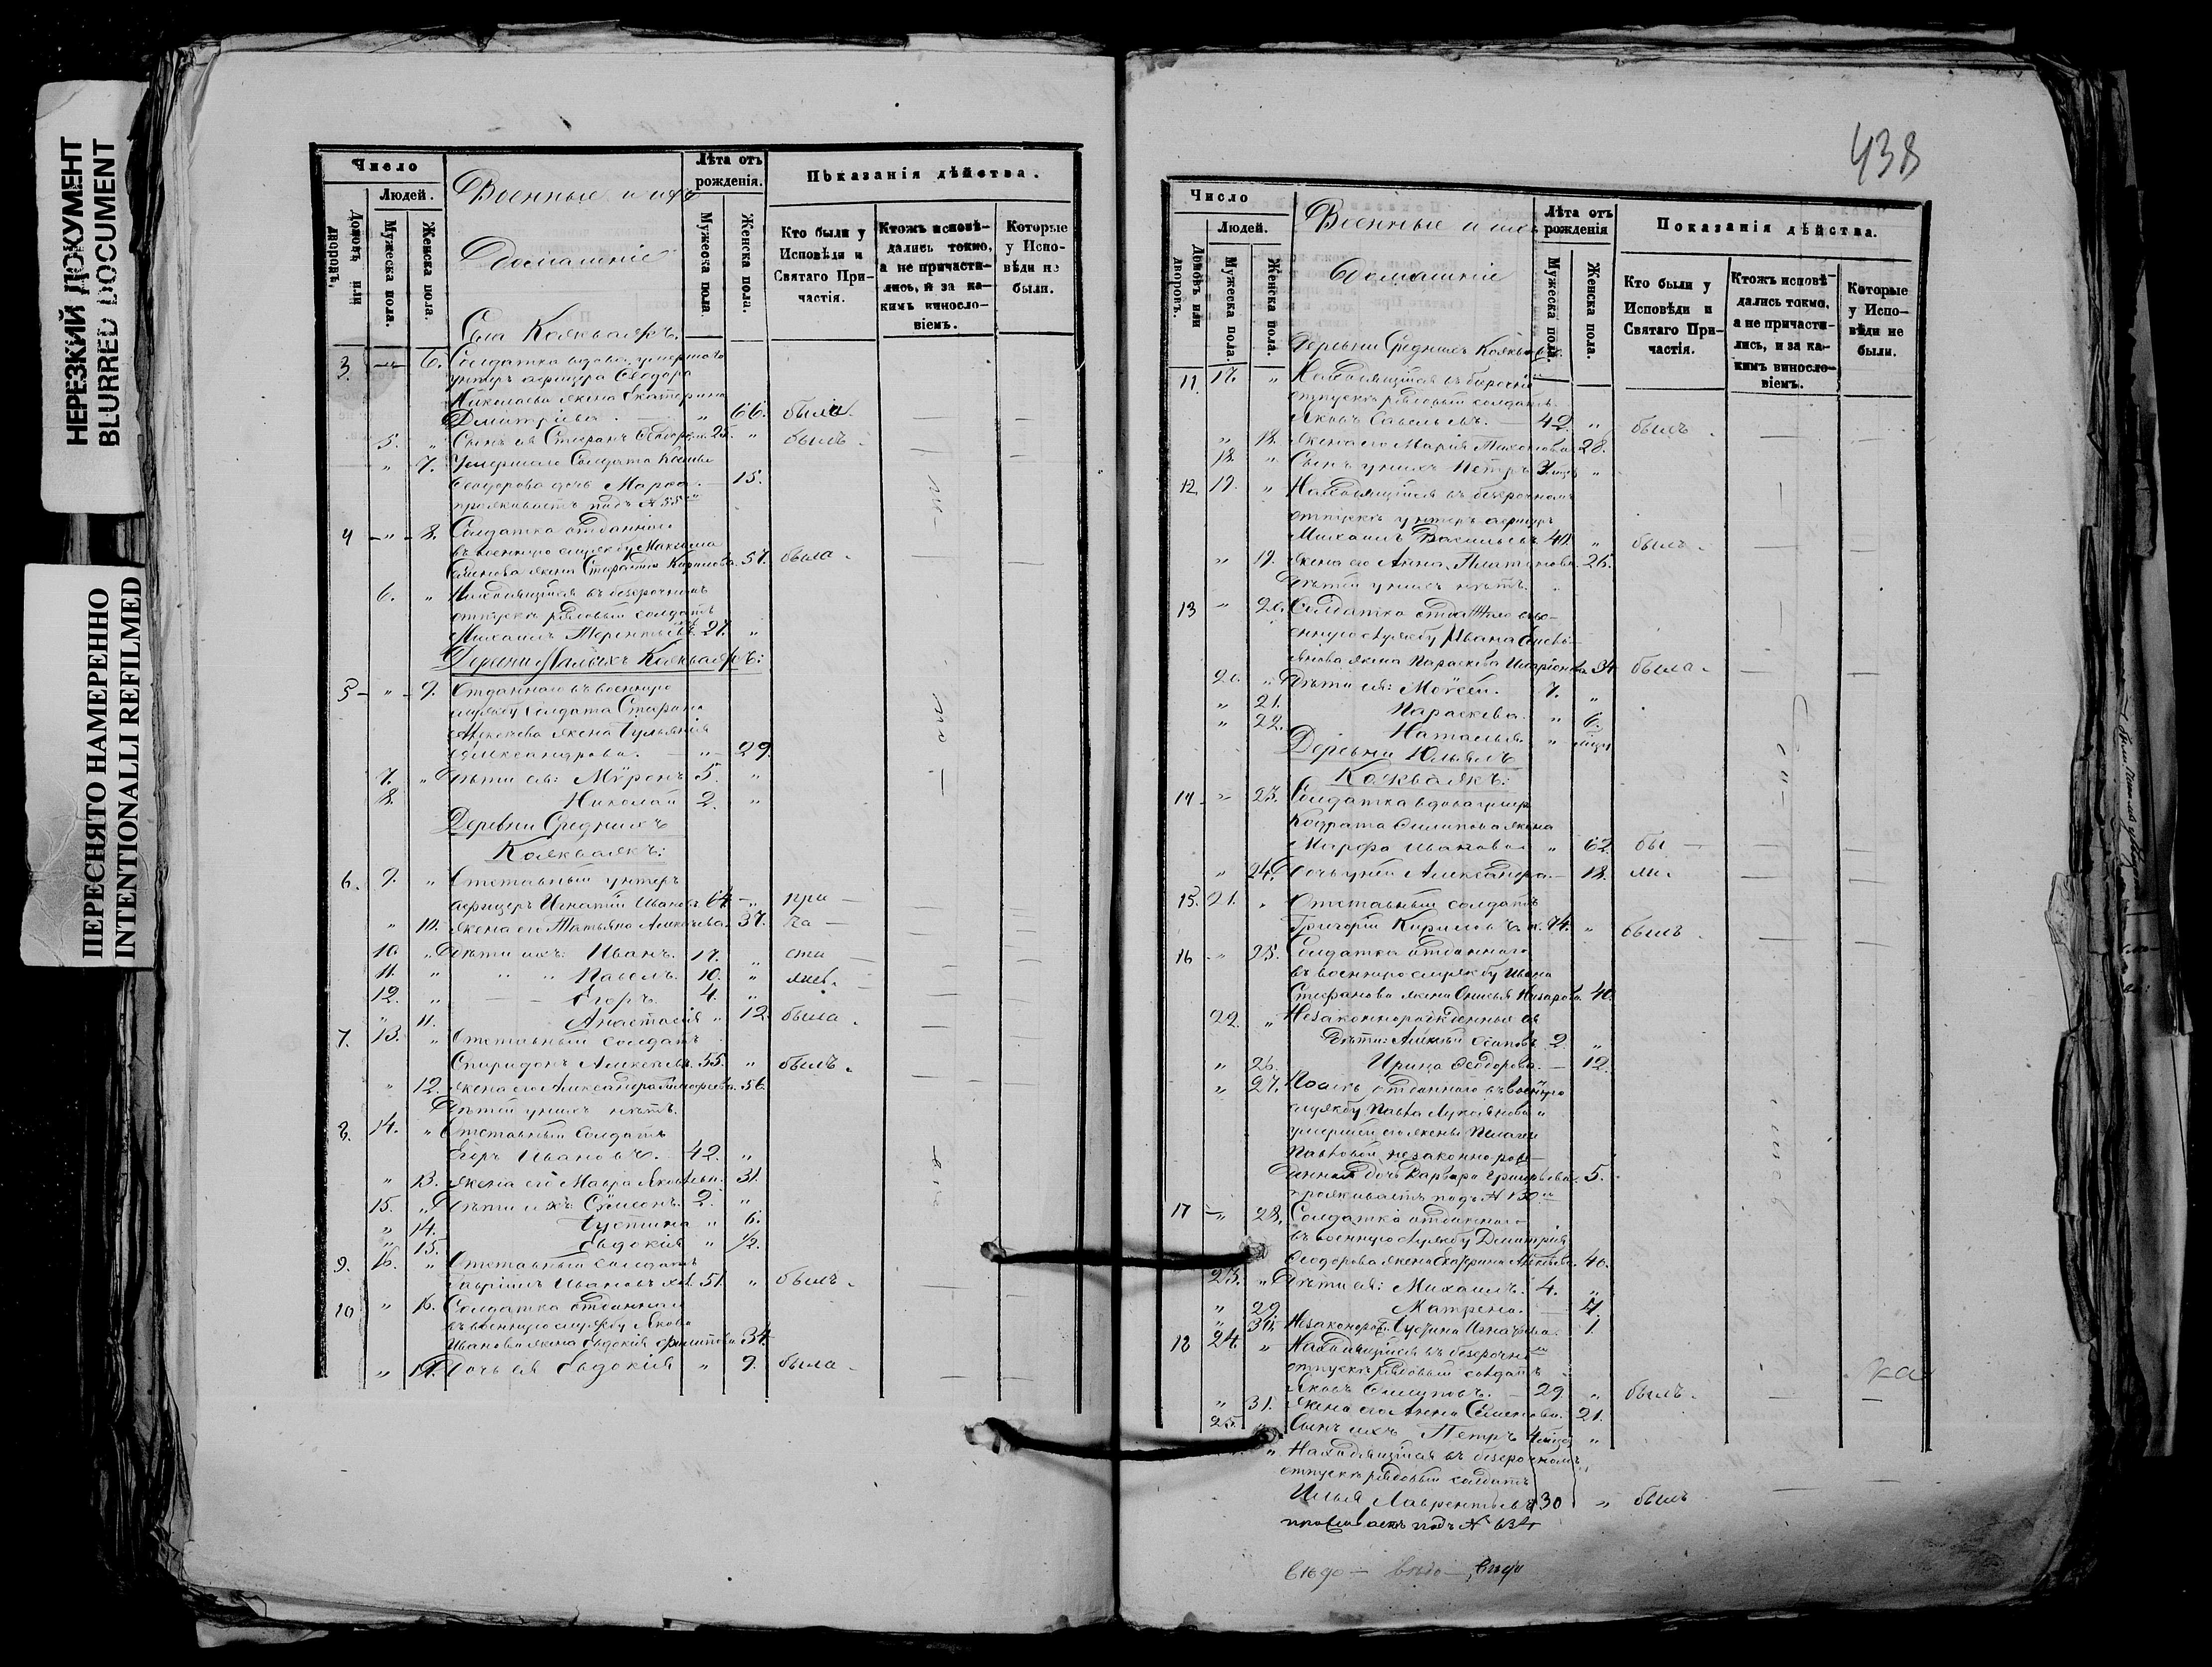 НЕРЕЗКИЙ ДОКУМЕНТ
BLURRED DOCUMENT
ПЕРЕСНЯТО НАМЕРЕННО
INTENTIONALLI REFILMED
Число
Людей.
Домовъ или дворовъ.
Мужеска пола.
Женска пола.
Военные и ихъ
Домашніе
Лѣта отъ рожденія.
Мужеска пола.
Женска пола.
Показанія дѣйства.
Кто были у Исповѣди и Святаго Причастія.
Ктожъ исповѣдались токмо, а не причастились, и за какимъ винословіемъ.
Которые у Исповѣди не были.
3. 6. Солдатка вдова умершаго
унтеръ офицера Ѳеодора
Николаева жена Екатерина
Дмитріева " 66. была
5. " Сынъ ея Стефанъ 25. " былъ
" 7. Умершаго Солдата
Ѳеодорова дочь Марѳа 15.
проживаетъ подъ № 55
4 " 8. Солдатка отданнаго
въ военную службу Максима
Семенова жена Кирилова 57. была
6. " Находящійся въ безсрочномъ
отпускѣ рядовый солдатъ
Михаилъ Терентьевъ 27. "
Деревни Малыхъ
5 " 9. Отданнаго въ военную
службу солдата Стефана
Алексѣева жена Іульянія
Александрова " 29.
7. " Дѣти ея: Мѵронъ 5. "
8. Николай 2. "
Деревни Среднихъ
6. 9. " Отставный унтеръ
офицеръ Игнатій Ивановъ 64. " при
" 10. жена его Татьяна Алексѣева 37. ча
10. " Дѣти ихъ: Иванъ 17. " сти
11. " Павелъ 10. "
12. " Егоръ 4. "
" 11. Анастасія " 12. была
7. 13. " Отставный солдатъ
Спиридонъ Алексѣевъ 55. " былъ
" 12. жена его Александра Тимофеева 56.
Дѣтей у нихъ нѣтъ.
8. 14. " Отставный Солдатъ
Егоръ Ивановъ. 42. "
" 13. жена его Мавра Яковлева 31.
15. " Дѣти ихъ: Сѵмеонъ 2. "
" 14. Іустина " 6.
" 15. Евдокія " 1/2.
9. 16. " Отставный солдатъ
Гавріилъ Ивановъ 51. " былъ
10 " 16. Солдатка отданнаго
въ военную службу Якова
Иванова жена Евдокія Филиппова 34.
" 17. Дочь ея Евдокія " 9. была
438
Число
Людей.
Домовъ или дворовъ.
Мужеска пола.
Женска пола.
Военные и ихъ
Домашніе
Лѣта отъ рожденія
Мужеска пола.
Женска пола.
Показанія дѣйства.
Кто были у Исповѣди и Святаго Причастія.
Ктожъ исповѣдались токмо, а не причастились, и за какимъ винословіемъ.
Которые у Исповѣди не были.
Деревни Среднихъ
11 17. " Находящійся въ
отпускѣ рядовый солдатъ
Яковъ Савельевъ. 42. " былъ
" 18. жена его Марія Тихонова 28.
18. " Сынъ у нихъ Петръ "
12 19. " Находящійся въ безсрочномъ
отпускѣ унтеръ офицеръ
Михаилъ Васильевъ 40. " былъ
" 19. жена его Анна Платонова 26.
Дѣтей у нихъ нѣтъ.
13 " 20. Солдатка
военную службу Ивана
жена Параскева Иларіонова 34 была
20. " Дѣти ея: Моѵсей. 7. "
" 21. Параскева " 6.
" 22. Наталья "
Деревни
14 " 23. Солдатка вдова умер
Филипова жена
Марфа Иванова " 62. бы
" 24. Дочь у ней Александра 18. ли
15. 21. " Отставный солдатъ
Григорій Кириловъ 74. " былъ
16 " 25. Солдатка отданнаго
въ военную службу Ивана
Стефанова жена Онисья Назарова 40.
22. " Незаконнорожденныя ея
дѣти: Алексѣй Осиповъ 2. "
" 26. Ирина Ѳеодорова 12.
" 27. отданнаго въ военную
службу Павла Лукьянова и
умершей его жены Пелагеи
Павловой незаконнорож
данная дочь Варвара Григорьева 5.
проживаетъ подъ № 130
17 " 28. Солдатка отданнаго
въ военную службу Дмитрія
Ѳеодорова жена Екатерина 40.
23. " Дѣти ея: Михаилъ 4. "
" 29. Матрена
" 30. Іустина Игнатьева 1.
18 24. " Находящійся въ безсрочномъ
отпускѣ рядовый солдатъ
Яковъ 29 " былъ
" 31. жена его Анна Семенова. 21.
25. " Сынъ ихъ Петръ "
" Находящійся въ безсрочномъ
отпускѣ рядовый солдатъ
Илья Лаврентьевъ 30 " былъ
проживаетъ подъ № 634